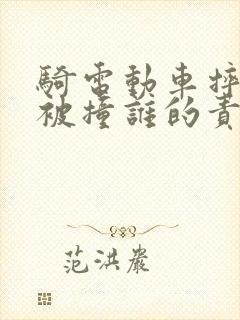 騎電動車摔
被撞誰的責
范洪嚴